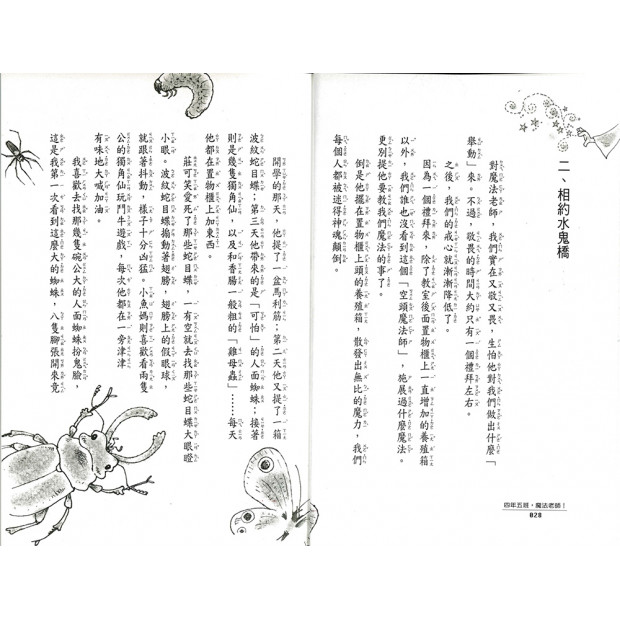 二、相約水鬼橋
對魔法老師，我們實在又敬又畏，生怕他對我們做出什麼「
舉動」來。不過，敬畏的時間大約只有一個禮拜左右。
之後，我們的戒心就漸漸降低了。
因為一個禮拜來，除了教室後面置物櫃上一直增加的養殖箱
以外，我們誰也沒看到這個「空頭魔法師」，施展過什麼魔法。
更別提他要教我們魔法的事了。
倒是他擺在置物櫃上頭的養殖箱，散發出無比的魔力，我們
每個人都被迷得神魂顛倒。
四年五班，魔法老師！
028
開學的那天，他提了一盆馬利筋；第二天他又提了一箱
波紋蛇目蝶；第三天他帶來的是「可怕」的人面蜘蛛；接著
則是幾隻獨角仙，以及和香腸一般粗的「雞母蟲」……每天
他都在置物櫃上加東西。
莊可笑愛死了那些蛇目蝶，一有空就去找那些蛇目蝶大眼瞪
小眼。波紋蛇目蝶搧動著翅膀，翅膀上的假眼球，
就跟著抖動，樣子十分凶猛。小魚媽則喜歡看兩隻
公的獨角仙玩鬥牛遊戲，每次他都在一旁津津
有味地大喊加油。
我喜歡去找那幾隻碗公大的人面蜘蛛扮鬼臉，
這是我第一次看到這麼大的蜘蛛，八隻腳張開來竟